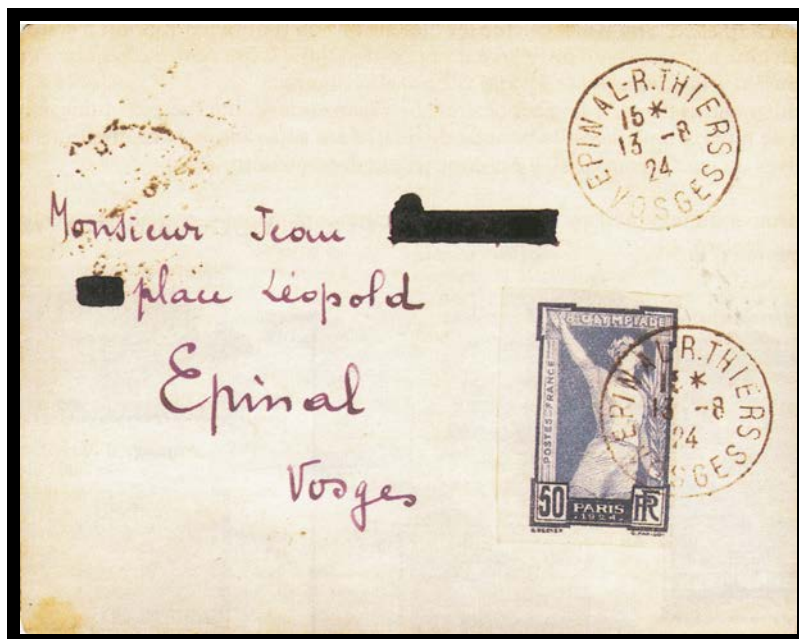 EPINAL-R.THIERS
15*
13 -8
24
VOSGES
Monsieur Jean
place Léopold
Epinal
Vosges
8e OLYMPIADE
POSTES-FRANCE
50
PARIS
1924
RF
EPINAL-R.THIERS
15*
13 -8
24
VOSGES